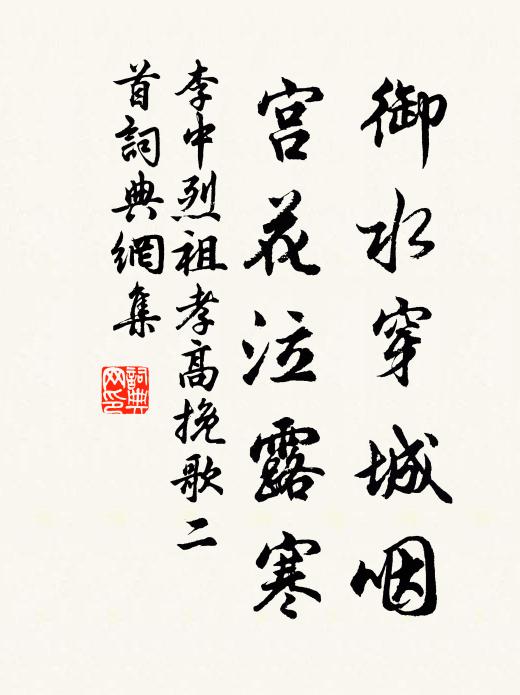 御水穿城咽
宫花泣露寒
李中烈祖孝高挽歌二
首詞典網集
詞典
网印